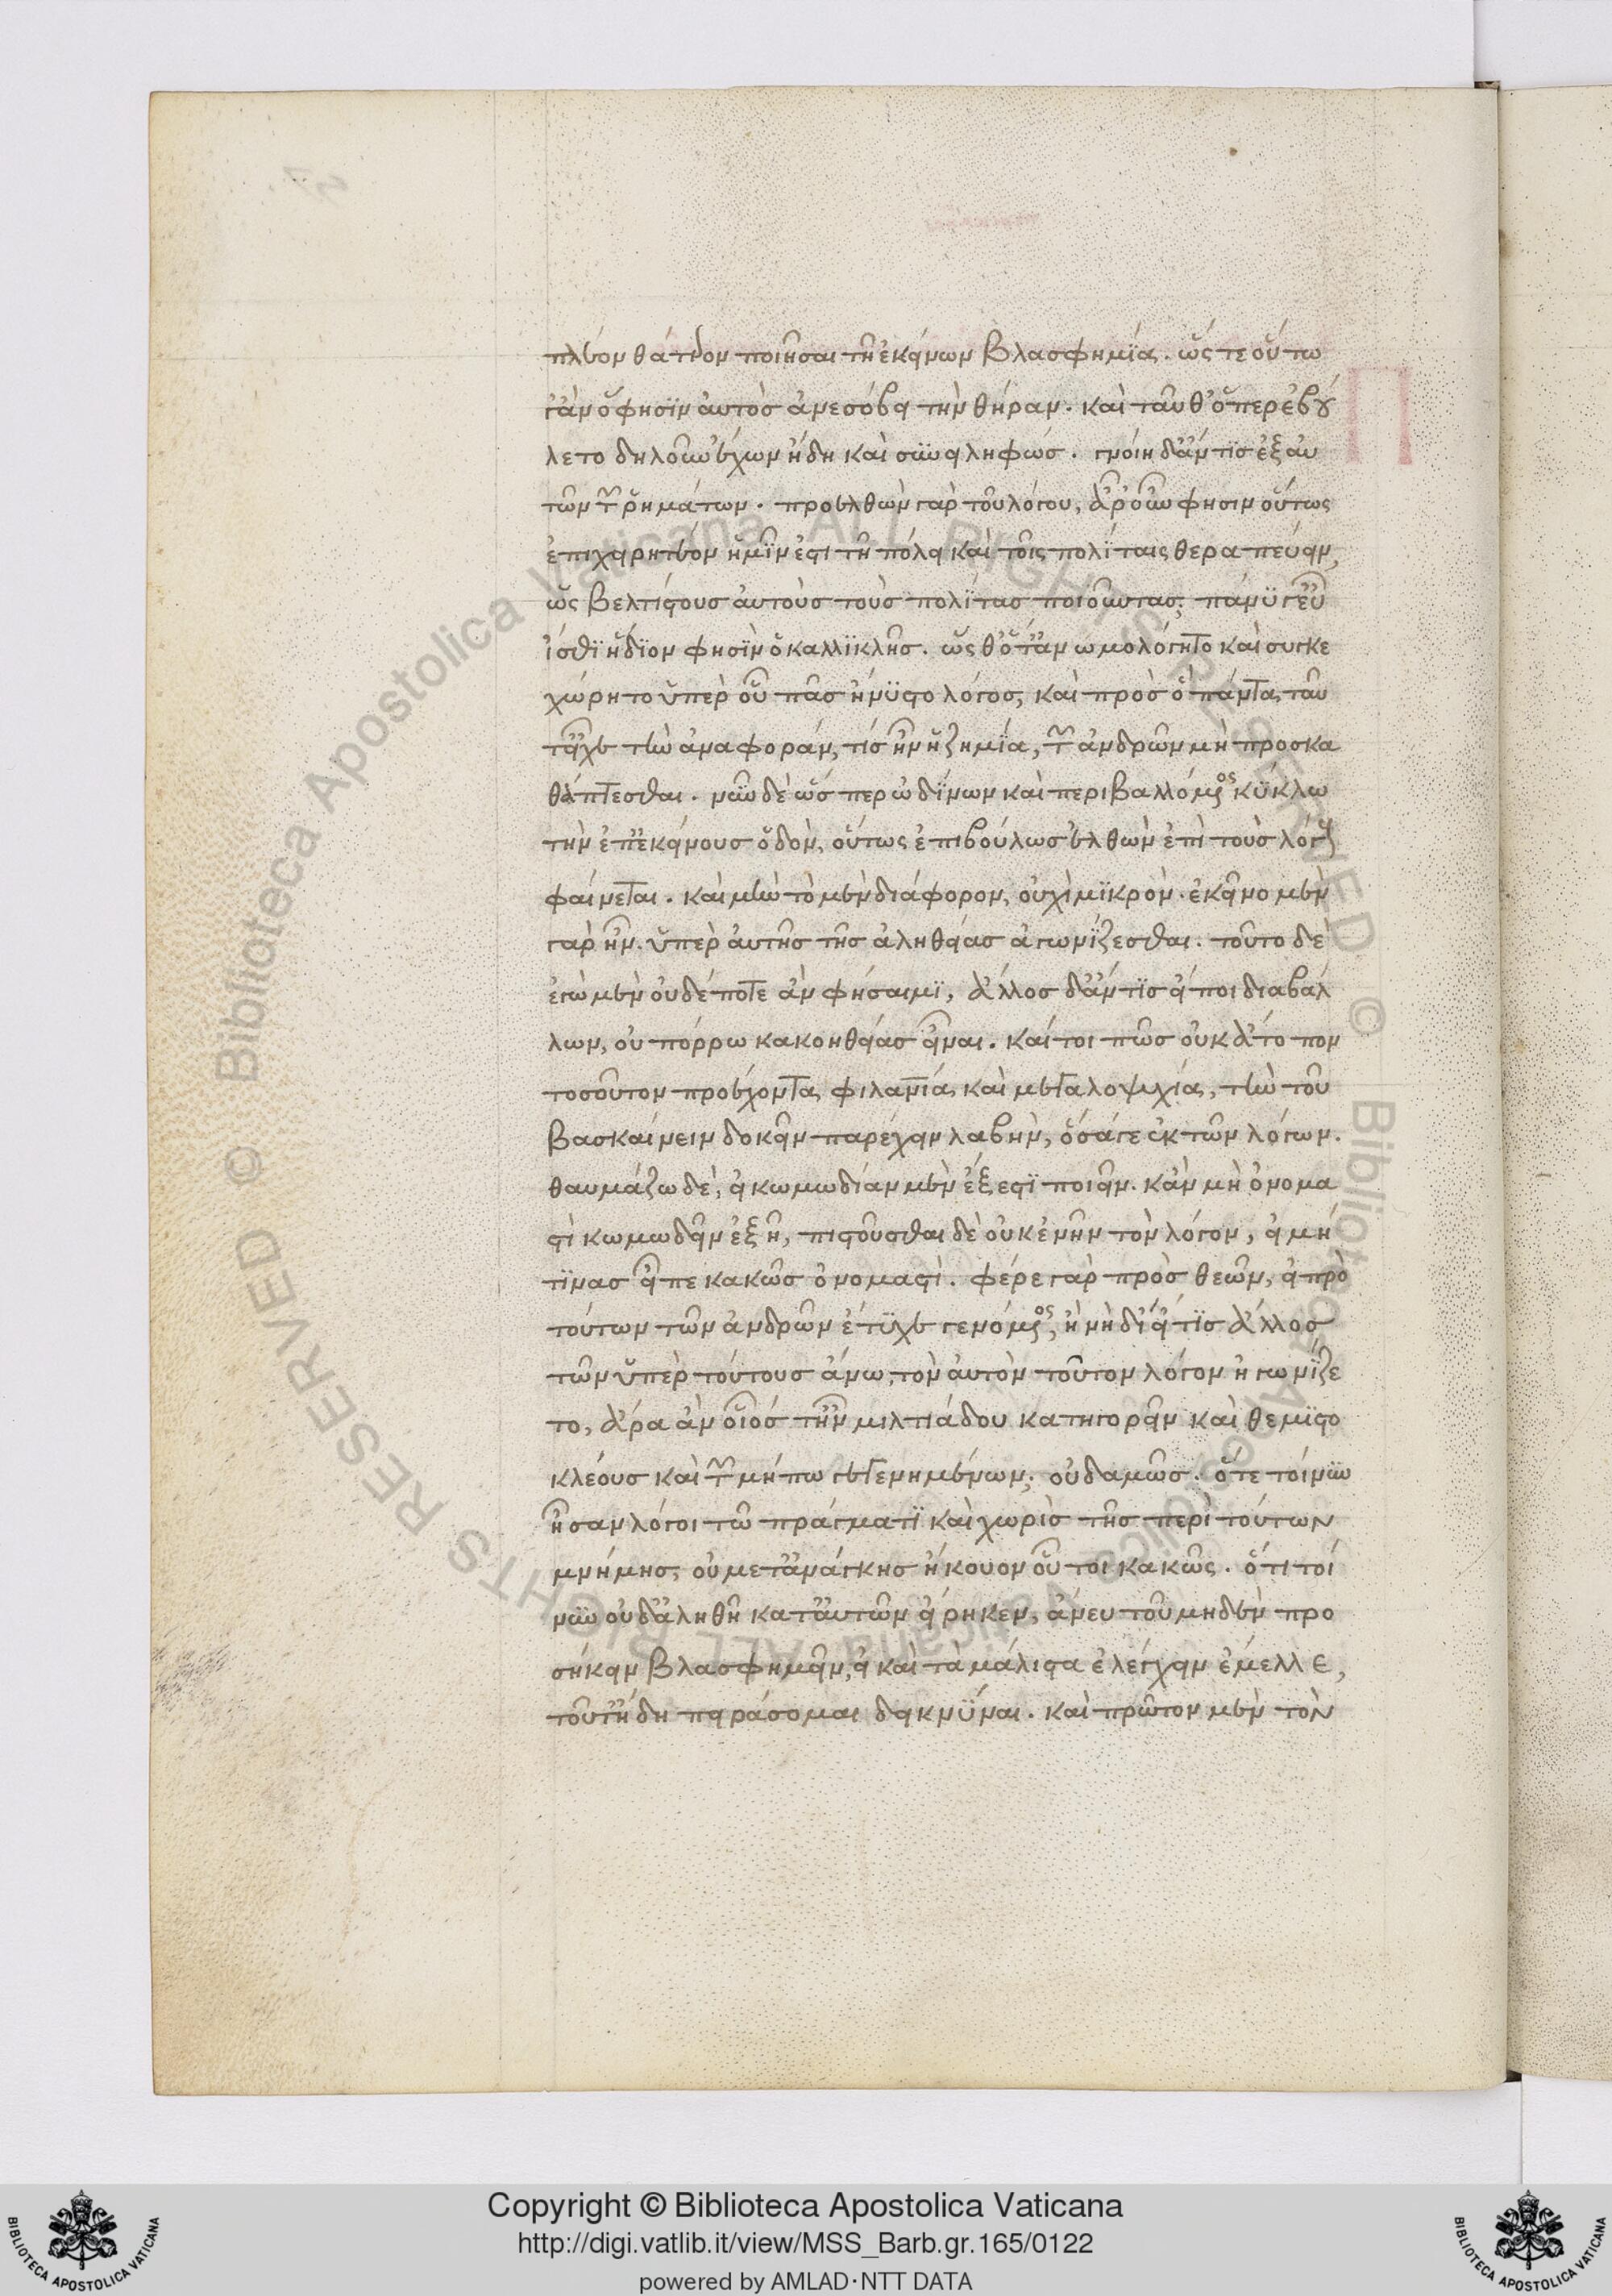 πλέον θάτερον ποιῆσαι τῇ ἐκείνων βλασφημίᾳ. ὥς τε οὔπω
γἂν ὅ φησὶν αὐτὸς ἀνεσόβει τὴν θήραν. καὶ ταῦθ' ὅπερ ἐβού
λετο δηλοῦν ἔχων ἤδη καὶ συνειληφώς. γνοίη δ' ἄν τις ἐξ αὐ
τῶν τῶν ῥημάτων. προελθὼν γὰρ τοῦ λόγου, ἆρ' οὖν φησιν οὕτως
ἐπιχειρητέον ἡμῖν ἐστι τῇ πόλει καὶ τοῖς πολίταις θεραπεύειν,
ὡς βελτίστους αὐτοὺς τοὺς πολίτας ποιοῦντας; πάνυ γ' εὖ
ἴσθι ἥδιον φησὶν ὁ καλλικλῆς. ὡς θ' ὅτ' ἂν ὡμολόγητο καὶ συγκε
χώρητο ὑπὲρ οὗ πᾶς ἠνύστο λόγος, καὶ πρὸς ὃ πάντα ταῦ
τ' εἶχε τὴν ἀναφοράν, τίς ἦν ἡ ζημία, τῶν ἀνδρῶν μὴ προσκα
θάπτεσθαι. νῦν δὲ ὥσπερ ὠδίνων καὶ περιβαλλόμενος κύκλω
τὴν ἐπ' ἐκείνους ὁδόν, οὕτως ἐπιβούλως ἐλθὼν ἐπὶ τοὺς λόγους
φαίνεται. καὶ μὴν τὸ μὲν διάφορον, οὐχὶ μικρόν. ἐκεῖνο μὲν
γὰρ ἦν. ὑπὲρ αὐτῆς τῆς ἀληθείας ἀγωνίζεσθαι. τοῦτο δὲ
ἐγὼ μὲν οὐδέποτε ἂν φήσαιμι, ἄλλος δ' ἄν τις εἴποι διαβάλ
λων, οὐ πόρρω κακοηθείας εἶναι. καίτοι πῶς οὐκ ἄτοπον
τοσοῦτον προέχοντα φιλανία καὶ μεγαλοψυχία, τὴν τοῦ
βασκαίνειν δοκεῖν παρέχειν λαβήν, ὅσά γε ἐκ τῶν λόγων.
θαυμάζω δὲ, εἰ κωμωδίαν μὲν ἔξεστι ποιεῖν. κἂν μὴ ὀνομα
στὶ κωμωδεῖν ἐξῆ, πιστοῦσθαι δὲ οὐκ ἐνῆν τὸν λόγον, εἰ μή
τινας εἶπε κακῶς ὀνομαστί. φέρε γὰρ πρὸς θεῶν, εἰ πρὸ
τούτων τῶν ἀνδρῶν ἔτυχε γενόμενος, ἢ νὴ δί' εἴ τις ἄλλος
τῶν ὑπὲρ τούτους ἄνω, τὸν αὐτὸν τοῦτον λόγον ἠγωνίζε
το, ἆρα ἂν οἷός τ' ἦν μιλτιάδου κατηγορεῖν καὶ θεμιστο
κλέους καὶ τῶν μήπω γεγενημένων; οὐδαμῶς. ὅτε τοίνυν
ἦσαν λόγοι τῶ πράγματι καὶ χωρὶς τῆς περὶ τούτων
μνήμης, οὐ μετ' ἀνάγκης ἤκουον οὗτοι κακῶς. ὅτι τοί
νυν οὐδ' ἀληθῆ κατ' αὐτῶν εἴρηκεν, ἄνευ τοῦ μηδὲν προ
σήκειν βλασφημεῖν, εἰ καὶ τὰ μάλιστα ἐλέγχειν ἔμελλε,
τοῦτ' ἤδη πειράσομαι δεικνύναι. καὶ πρῶτον μὲν τὸν
Copyright © Biblioteca Apostolica Vaticana
http://digi.vatlib.it/view/MSS_Barb.gr.165/0122
powered by AMLAD·NTT DATA